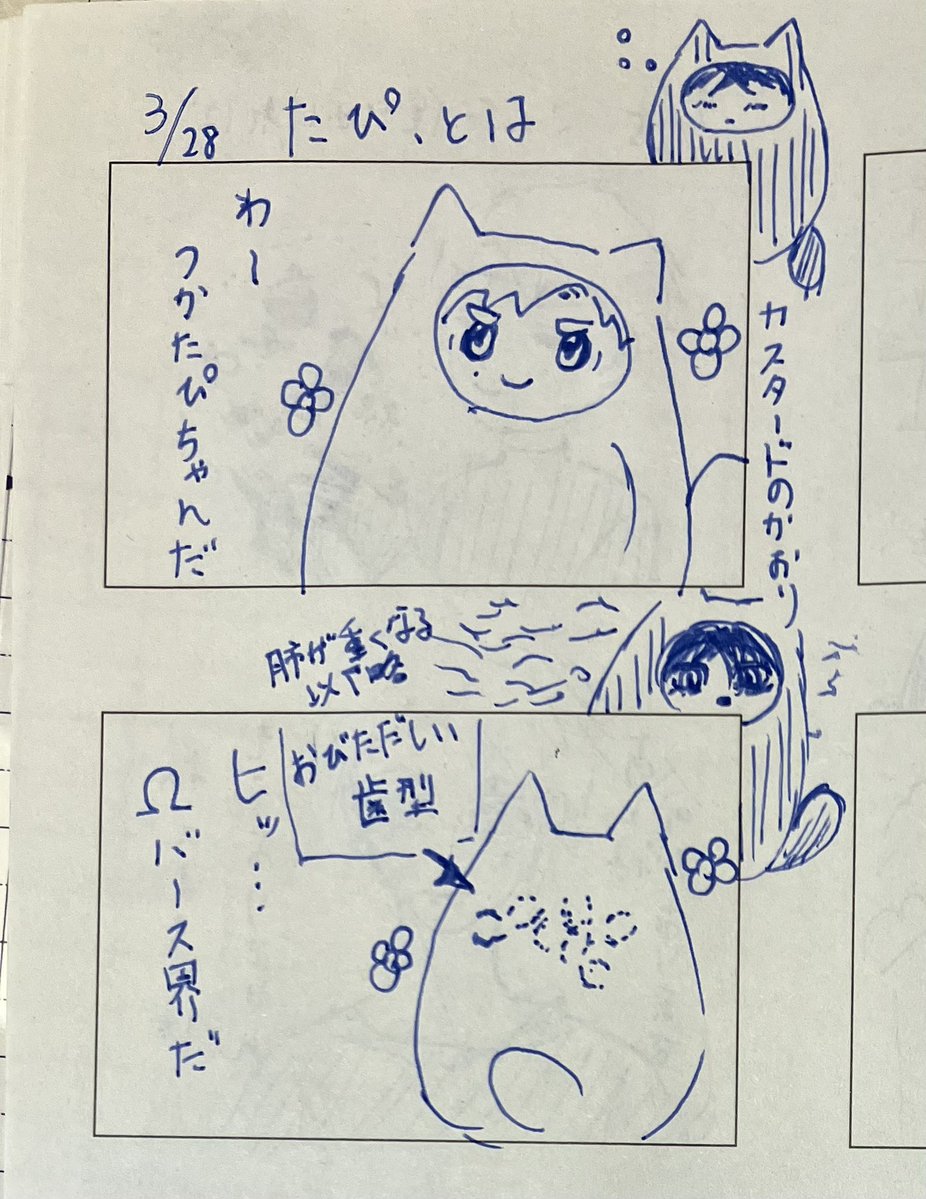 3/28 たぴ、とは
わー
つかたぴちゃんだ
カスタードのかおり
肺が重くなる
以下略
おびただしい
歯型
ヒッ…
Ωバース界だ